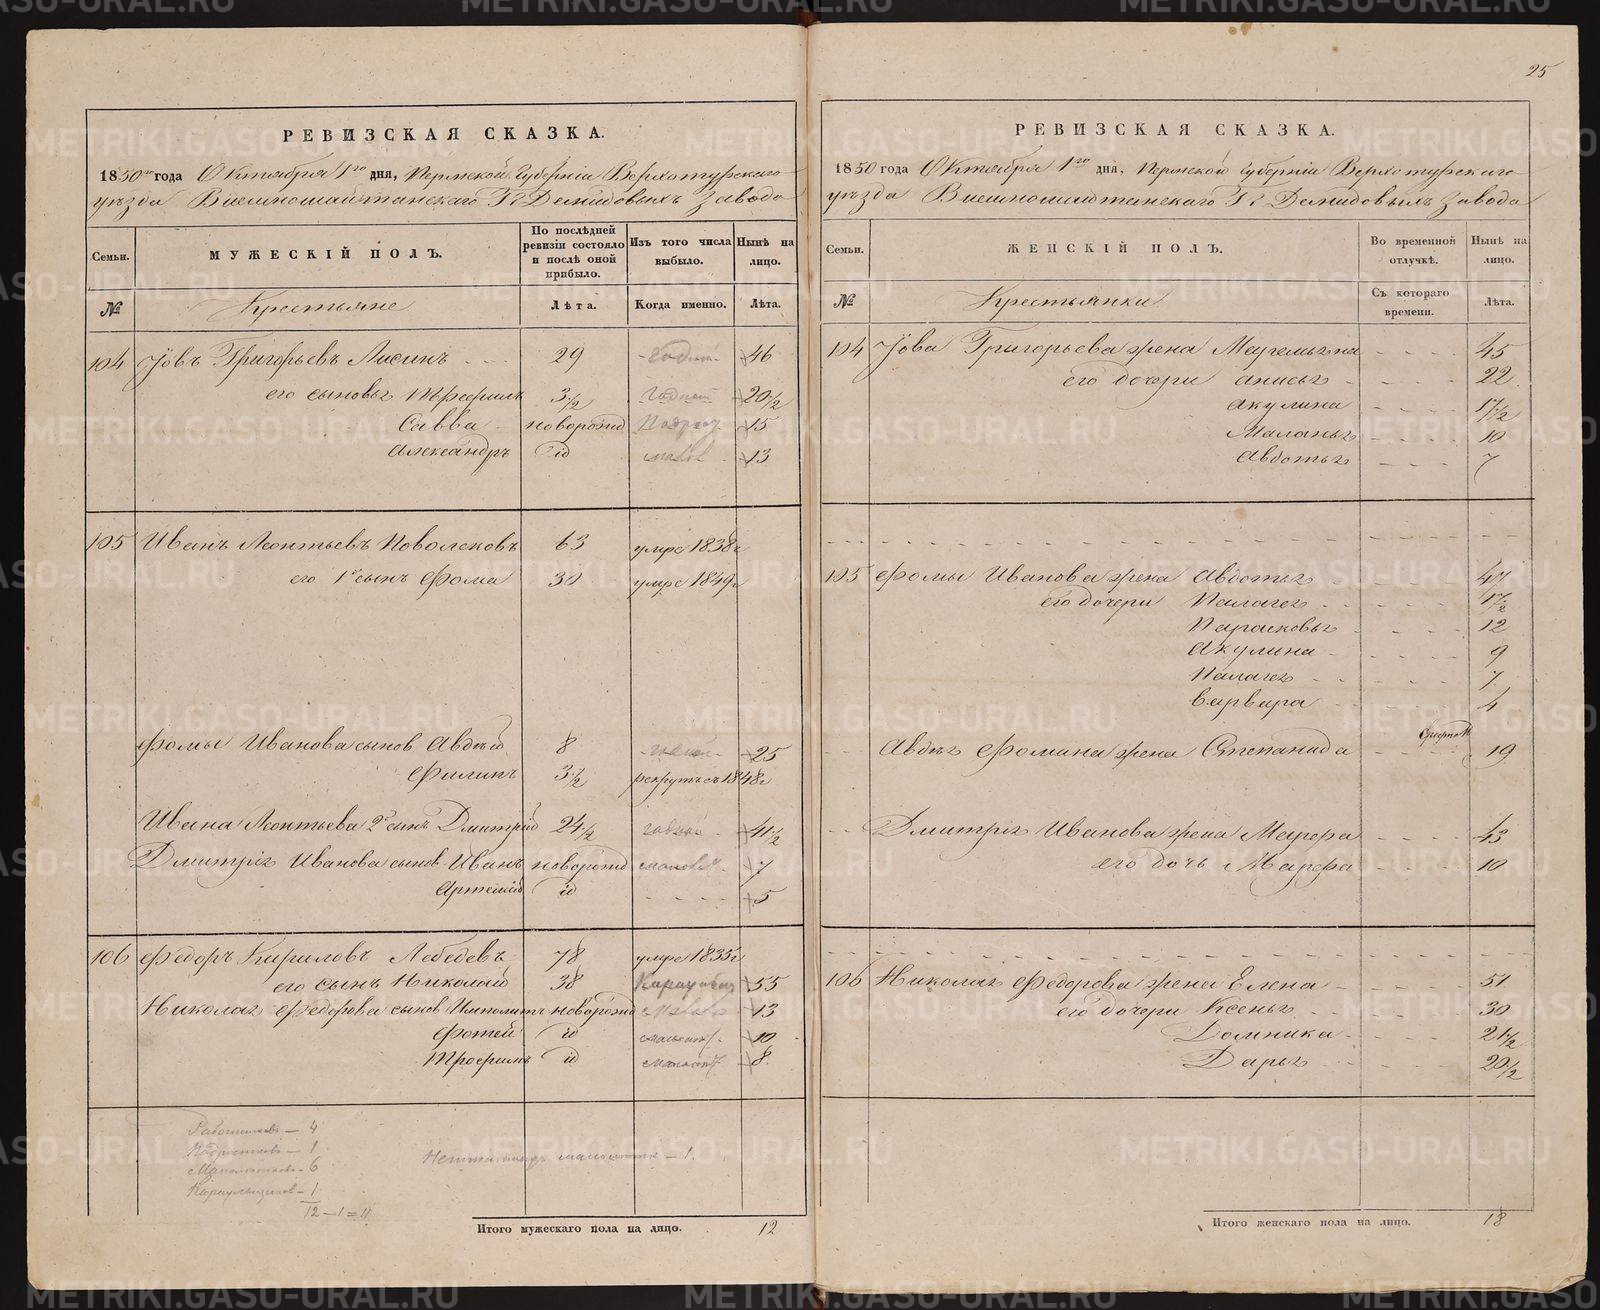 25
РЕВИЗСКАЯ СКАЗКА.
1850го года Октября 1го дня, Пермской Губерніи Верхотурскаго
уѣзда Висимошайтанскаго Гг. Демидовыхъ Завода
Семьи. МУЖЕСКІЙ ПОЛЪ. По послѣдней ревизіи состояло и послѣ оной прибыло. Изъ того числа выбыло. Нынѣ на лицо.
№ Крестьяне Лѣта. Когда именно. Лѣта.
104 Іовъ Григорьевъ Лисинъ 29 годной 46
его сыновья Трофимъ 3 1/2 годной 20 1/2
Савва новорожд 15
Александръ id 13
105 Иванъ Леонтьевъ Поволековъ 63 умре 1838г
его 1й сынъ Фома 30 умре 1849г
Фомы Иванова сынов Авдѣй 8 25
Филипъ 3 1/2 рекрутъ съ 1848г
Ивана Леонтьева 2й сынъ Дмитрій 24 1/2 годной 41 1/2
Дмитрія Иванова сынов Иванъ новорожд 7
Артемій id 5
106 Федоръ Кириловъ Лебедевъ 78 умре 1835г
его сынъ Николай 38 55
Николая Федорова сынов Ипполитъ новорожд 13
Фотей id 10
Трофимъ id 8
Работников — 4
Подростков — 1
Малолетков — 6
Караульщиков — 1
12 — 1 = 11
малолеток — 1
Итого мужескаго пола на лицо. 12
РЕВИЗСКАЯ СКАЗКА.
1850 года Октября 1го дня, Пермской Губерніи Верхотурскаго
уѣзда Висимошайтанскаго Гг. Демидовыхъ Завода
Семьи. ЖЕНСКІЙ ПОЛЪ. Во временной отлучкѣ. Нынѣ на лицо.
№ Крестьянки Съ котораго времени. Лѣта.
104 Іова Григорьева жена Маремьяна 45
его дочери Анисья 22
Акулина 17 1/2
Маланья 10
Авдотья 7
105 Фомы Иванова жена Авдотья 47
его дочери Палагея 17 1/2
Парасковья 12
Акулина 9
Палагея 7
Варвара 4
Авдѣя Фомина жена Степанида 19
Дмитрія Иванова жена Марфа 43
его дочь Марфа 10
106 Николая Федорова жена Елена 51
его дочери Ксенья 30
Домника 21 1/2
Дарья 20 1/2
Итого женскаго пола на лицо. 18
METRIKI.GASO-URAL.RU